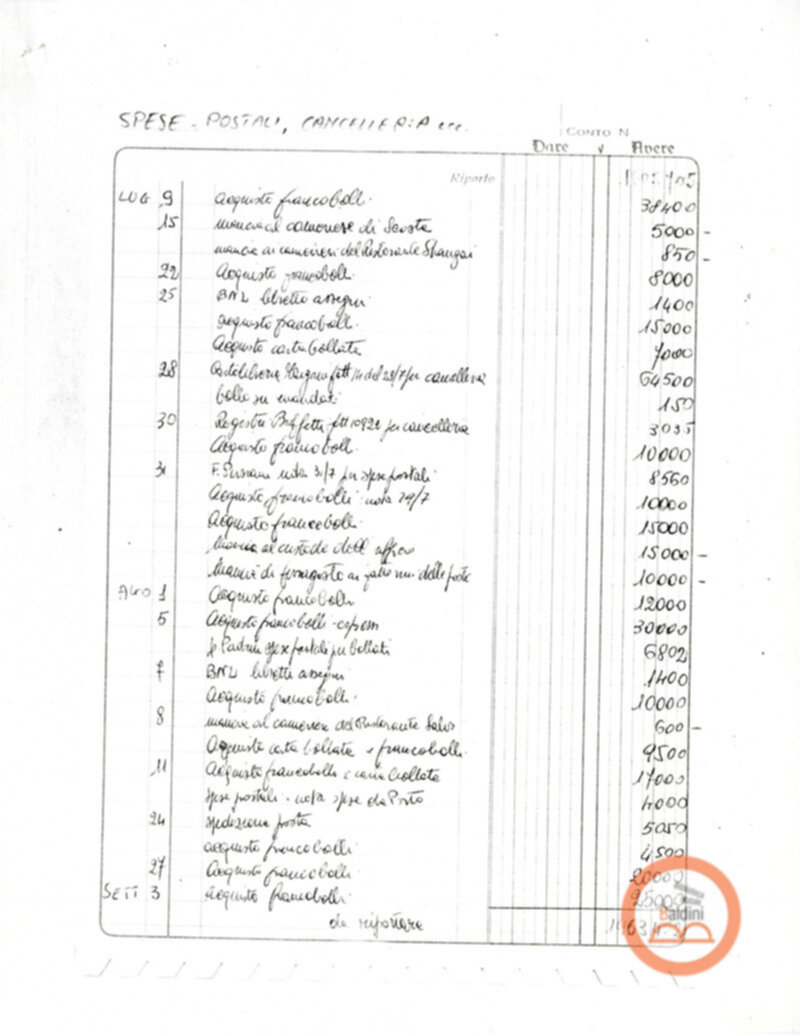 SPESE - POSTALI, CANCELLERIA ecc.
CONTO N
Dare v Avere
Riporto
LUG 9 Acquisto francobolli 38400
15 mancia al cameriere di 5000 -
mancia ai camerieri del Ristorante Shangai 850 -
22 Acquisto francobolli 8000
25 BNL libretto assegni 1400
Acquisto francobolli 15000
Acquisto carta bollata 7000
28 Cartoleria fatt 14 del 28/7 per cancelleria 64500
bollo su mandati 150
30 Registri Buffetti fatt 10921 per cancelleria
Acquisto francobolli 10000
31 F. nota 31/7 per spese postali 8560
Acquisto francobolli nota 29/7 10000
Acquisto francobolli 15000
Mancia al custode dell' ufficio 15000 -
Mancia di ferragosto ai delle poste 10000 -
AGO 1 Acquisto francobolli 12000
5 Acquisto francobolli - espressi 30000
spese postali per bollati 6802
7 BNL libretto assegni 1400
Acquisto francobolli 10000
8 mancia al cameriere del Ristorante 600 -
Acquisto carta bollata e francobolli 9500
11 Acquisto francobolli e carta bollata 17000
spese postali - nota spese da 4000
24 spedizione posta 5050
acquisto francobolli 4500
27 Acquisto francobolli 20000
SETT 3 acquisto francobolli 25000
da riportare
Baldini